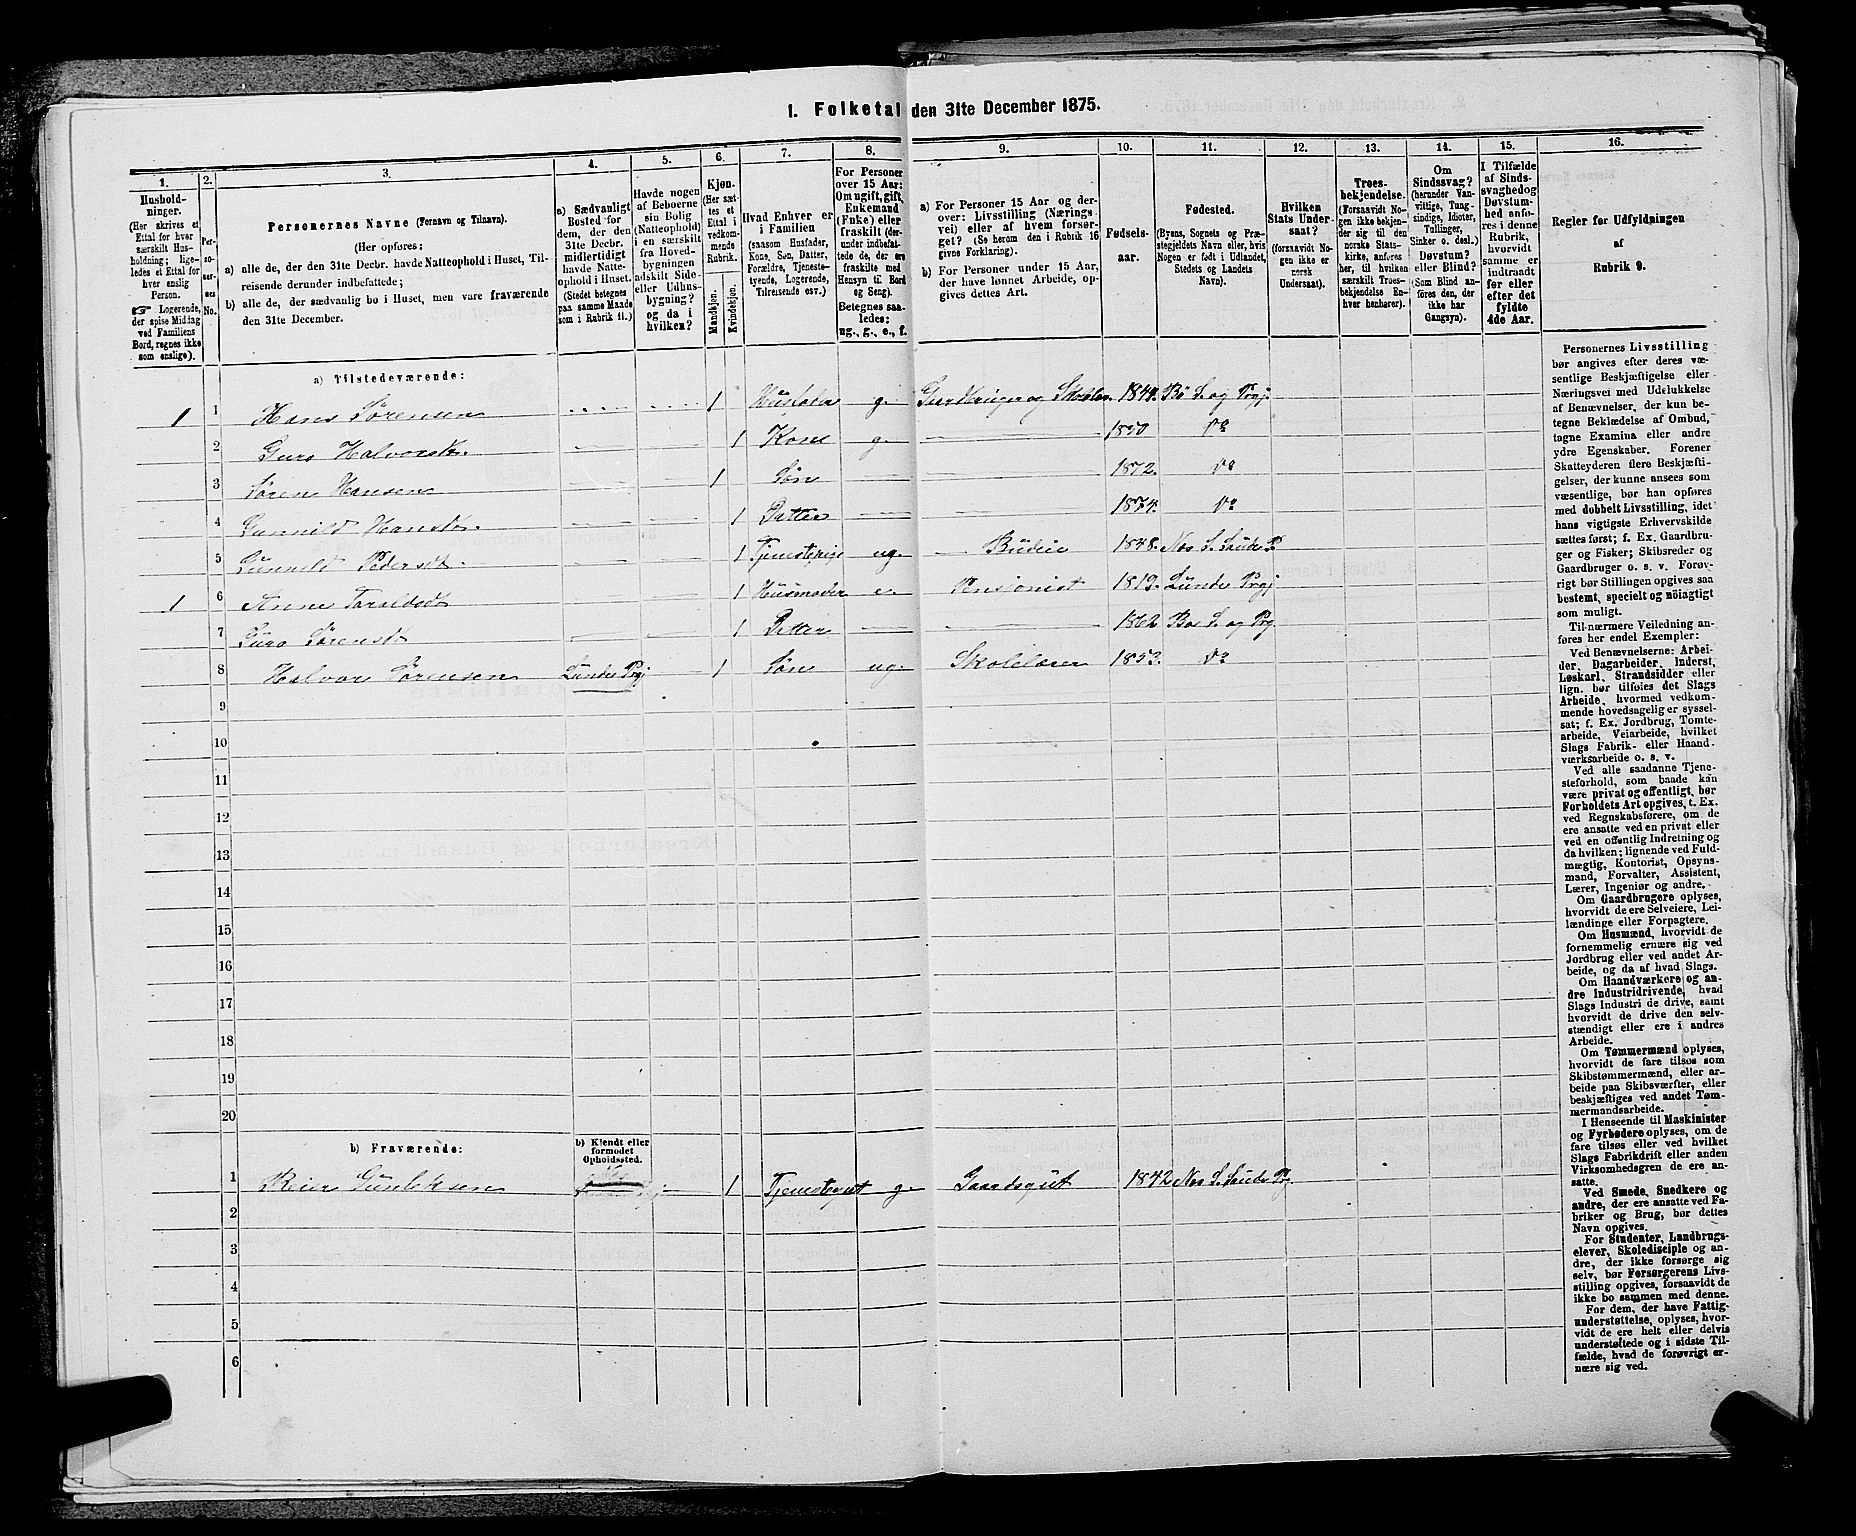 1. Folketal den 31te December 1875.
1.
Hushold-
ninger.
(Her skrives et
Ettal for hver
særskilt Hus-
holdning; lige-
ledes et Ettal for
hver enslig
Person.
☞ Logerende,
der spise Middag
ved Familiens
Bord, regnes ikke
som enslige).
2.
Per-
so-
ner-
nes
No.
3.
Personernes Navne (Fornavn og Tilnavn).
(Her opføres:
a) alle de, der den 31te Decbr. havde Natteophold i Huset, Til-
reisende derunder indbefattede;
b) alle de, der sædvanlig bo i Huset, men vare fraværende
den 31te December.
4.
a) Sædvanligt
Bosted for
dem, der den
31te Decbr.
midlertidigt
havde Natte-
ophold i Huset.
(Stedet betegnes
paa samme Maade
som i Rubrik 11.)
5.
Havde nogen
af Beboerne
sin Bolig
(Natteophold)
i en særskilt
fra Hoved-
bygningen
adskilt Side-
eller Udhus-
bygning?
og da i
hvilken?
6.
Kjøn.
(Her sæt-
tes et
Ettal i
vedkom-
mende
Rubrik.
Mandkjøn.
Kvindekjøn.
7.
Hvad Enhver er
i Familien
(saasom Husfader,
Kone, Søn, Datter,
Forældre, Tjeneste-
tyende, Logerende,
Tilreisende osv.)
8.
For Personer
over 15 Aar:
Om ugift, gift,
Enkemand
(Enke) eller
fraskilt (der-
under indbefat-
tede de, der ere
fraskilte med
Hensyn til Bord
og Seng).
Betegnes saa-
ledes:
ug., g., e., f.
9.
a) For Personer 15 Aar og der-
over: Livsstilling (Nærings-
vei) eller af hvem forsør-
get? (Se herom den i Rubrik 16
givne Forklaring).
b) For Personer under 15 Aar,
der have lønnet Arbeide, op-
gives dettes Art.
10.
Fødsels-
aar.
11.
Fødested.
(Byens, Sognets og Præ-
stegjeldets Navn eller, hvis
Nogen er født i Udlandet,
Stedets og Landets
Navn).
12.
Hvilken
Stats Under-
saat?
(forsaavidt No-
gen ikke er
norsk
Undersaat).
13.
Troes-
bekjendelse.
(Forsaavidt No-
gen ikke bekjen-
der sig til den
norske Stats-
kirke, anføres
her, til hvilken
særskilt Troes-
bekjendelse En-
hver henhører).
14.
Om
Sindssvag?
(herunder Van-
vittige, Tung-
sindige, Idioter,
Tullinger,
Sinker o. desl.)
Døvstum?
eller Blind?
(Som Blind an-
føres den, der
ikke har
Gangsyn).
15.
I Tilfælde
af Sinds-
svaghed og
Døvstum-
hed anfø-
res i denne
Rubrik,
hvorvidt
samme er
indtraadt
før eller
efter det
fyldte
4de Aar.
16.
Regler før Udfyldningen
af
Rubrik 9.
a) Tilstedeværende:
1 1 Hans Sørensen 1 Husfader g. Gaardbruger og Skolelr. 1844. Bø S. og Prgj.
2 Guro Halvorsdr. 1 Kone g. 1850 Do
3 Søren Hansen 1 Søn 1872. Do
4 Gunnild Hansdr. 1 Datter 1874. Do
5 Gunnild Pedersd. 1 Tjenestepige ug. Budeie 1848. Nes S. Saude P.
1 6 Anne Taraldsd 1 Husmoder e. Pensionist 1819. Lunde Prgj
7 Guro Sørensd 1 Datter 1862 Bø S. og Prg.
8 Halvor Sørensen Lunde Prgj 1 Søn ug. Skolelærer 1853. Do
9
10
11
12
13
14
15
16
17
18
19
20
b) Fraværende:
b) Kjendt eller
formodet
Opholdssted.
1 Reier Gunleksen 1 Tjenestegut g. Gaardsgut 1842 Nes S. Saude Pr.
2
3
4
5
6
Personernes Livsstilling
bør angives efter deres væ-
sentlige Beskjæftigelse eller
Næringsvei med Udelukkelse
af Benævnelser, der kun be-
tegne Beklædelse af Ombud,
tagne Examina eller andre
ydre Egenskaber. Forener
Skatteyderen flere Beskjæfti-
gelser, der kunne ansees som
væsentlige, bør han opføres
med dobbelt Livsstilling, idet
hans vigtigste Erhvervskilde
sættes først; f. Ex. Gaardbru-
ger og Fisker; Skibsreder og
Gaardbruger o. s. v. Forøv-
rigt bør Stillingen opgives saa
bestemt, specielt og nöiagtigt
som muligt.
Til nærmere Veiledning an-
føres her endel Exempler:
Ved Benævnelserne: Arbei-
der, Dagarbeider, Inderst,
Løskarl, Strandsidder eller
lign. bør tilføies det Slags
Arbeide, hvormed vedkom-
mende hovedsagelig er syssel-
sat; f. Ex. Jordbrug, Tomte-
arbeide, Veiarbeide, hvilket
Slags Fabrik- eller Haand-
værksarbeide o. s. v.
Ved alle saadanne Tjene-
steforhold, som baade kan
være privat og offentligt, bør
Forholdets Art opgives, t. Ex.
ved Regnskabsførere, om de
ere ansatte ved en privat eller
ved en offentlig Indretning og
da hvilken; lignende ved Fuld-
mægtig, Kontorist, Opsyns-
mand, Forvalter, Assistent,
Lærer, Ingeniør og andre.
Om Gaardbrugere oplyses,
hvorvidt de ere Selveiere, Lei-
lændinge eller Forpagtere.
Om Husmænd, hvorvidt de
fornemmelig ernære sig ved
Jordbrug eller ved andet Ar-
beide, og da af hvad Slags.
Om Haandværkere og an-
dre Industridrivende, hvad
Slags Industri de drive, samt
hvorvidt de drive den selv-
stændigt eller ere i andres
Arbeide.
Om Tømmermænd oplyses,
hvorvidt de fare tilsøs som
Skibstømmermænd, eller ar-
beide paa Skibsværfter, eller
beskjæftiges ved andet Tøm-
mermandsarbeide.
I Henseende til Maskinister
og Fyrbødere oplyses, om de
fare tilsøs eller ved hvilket
Slags Fabrikdrift eller anden
Virksomhedsgren de ere an-
satte.
Ved Smede, Snedkere og
andre, der ere ansatte ved Fa-
briker og Brug, bør dettes
Navn opgives.
For Studenter, Landbrugs-
elever, Skoledisciple og an-
dre, der ikke forsørge sig
selv, bør Forsørgerens Livs-
stilling opgives, forsaavidt de
ikke bo sammen med denne.
For dem, der have Fattig-
understøttelse, oplyses, hvor-
vidt de ere helt eller delvis
understøttede og i sidste Til-
fælde, hvad de forøvrigt er-
nære sig ved.